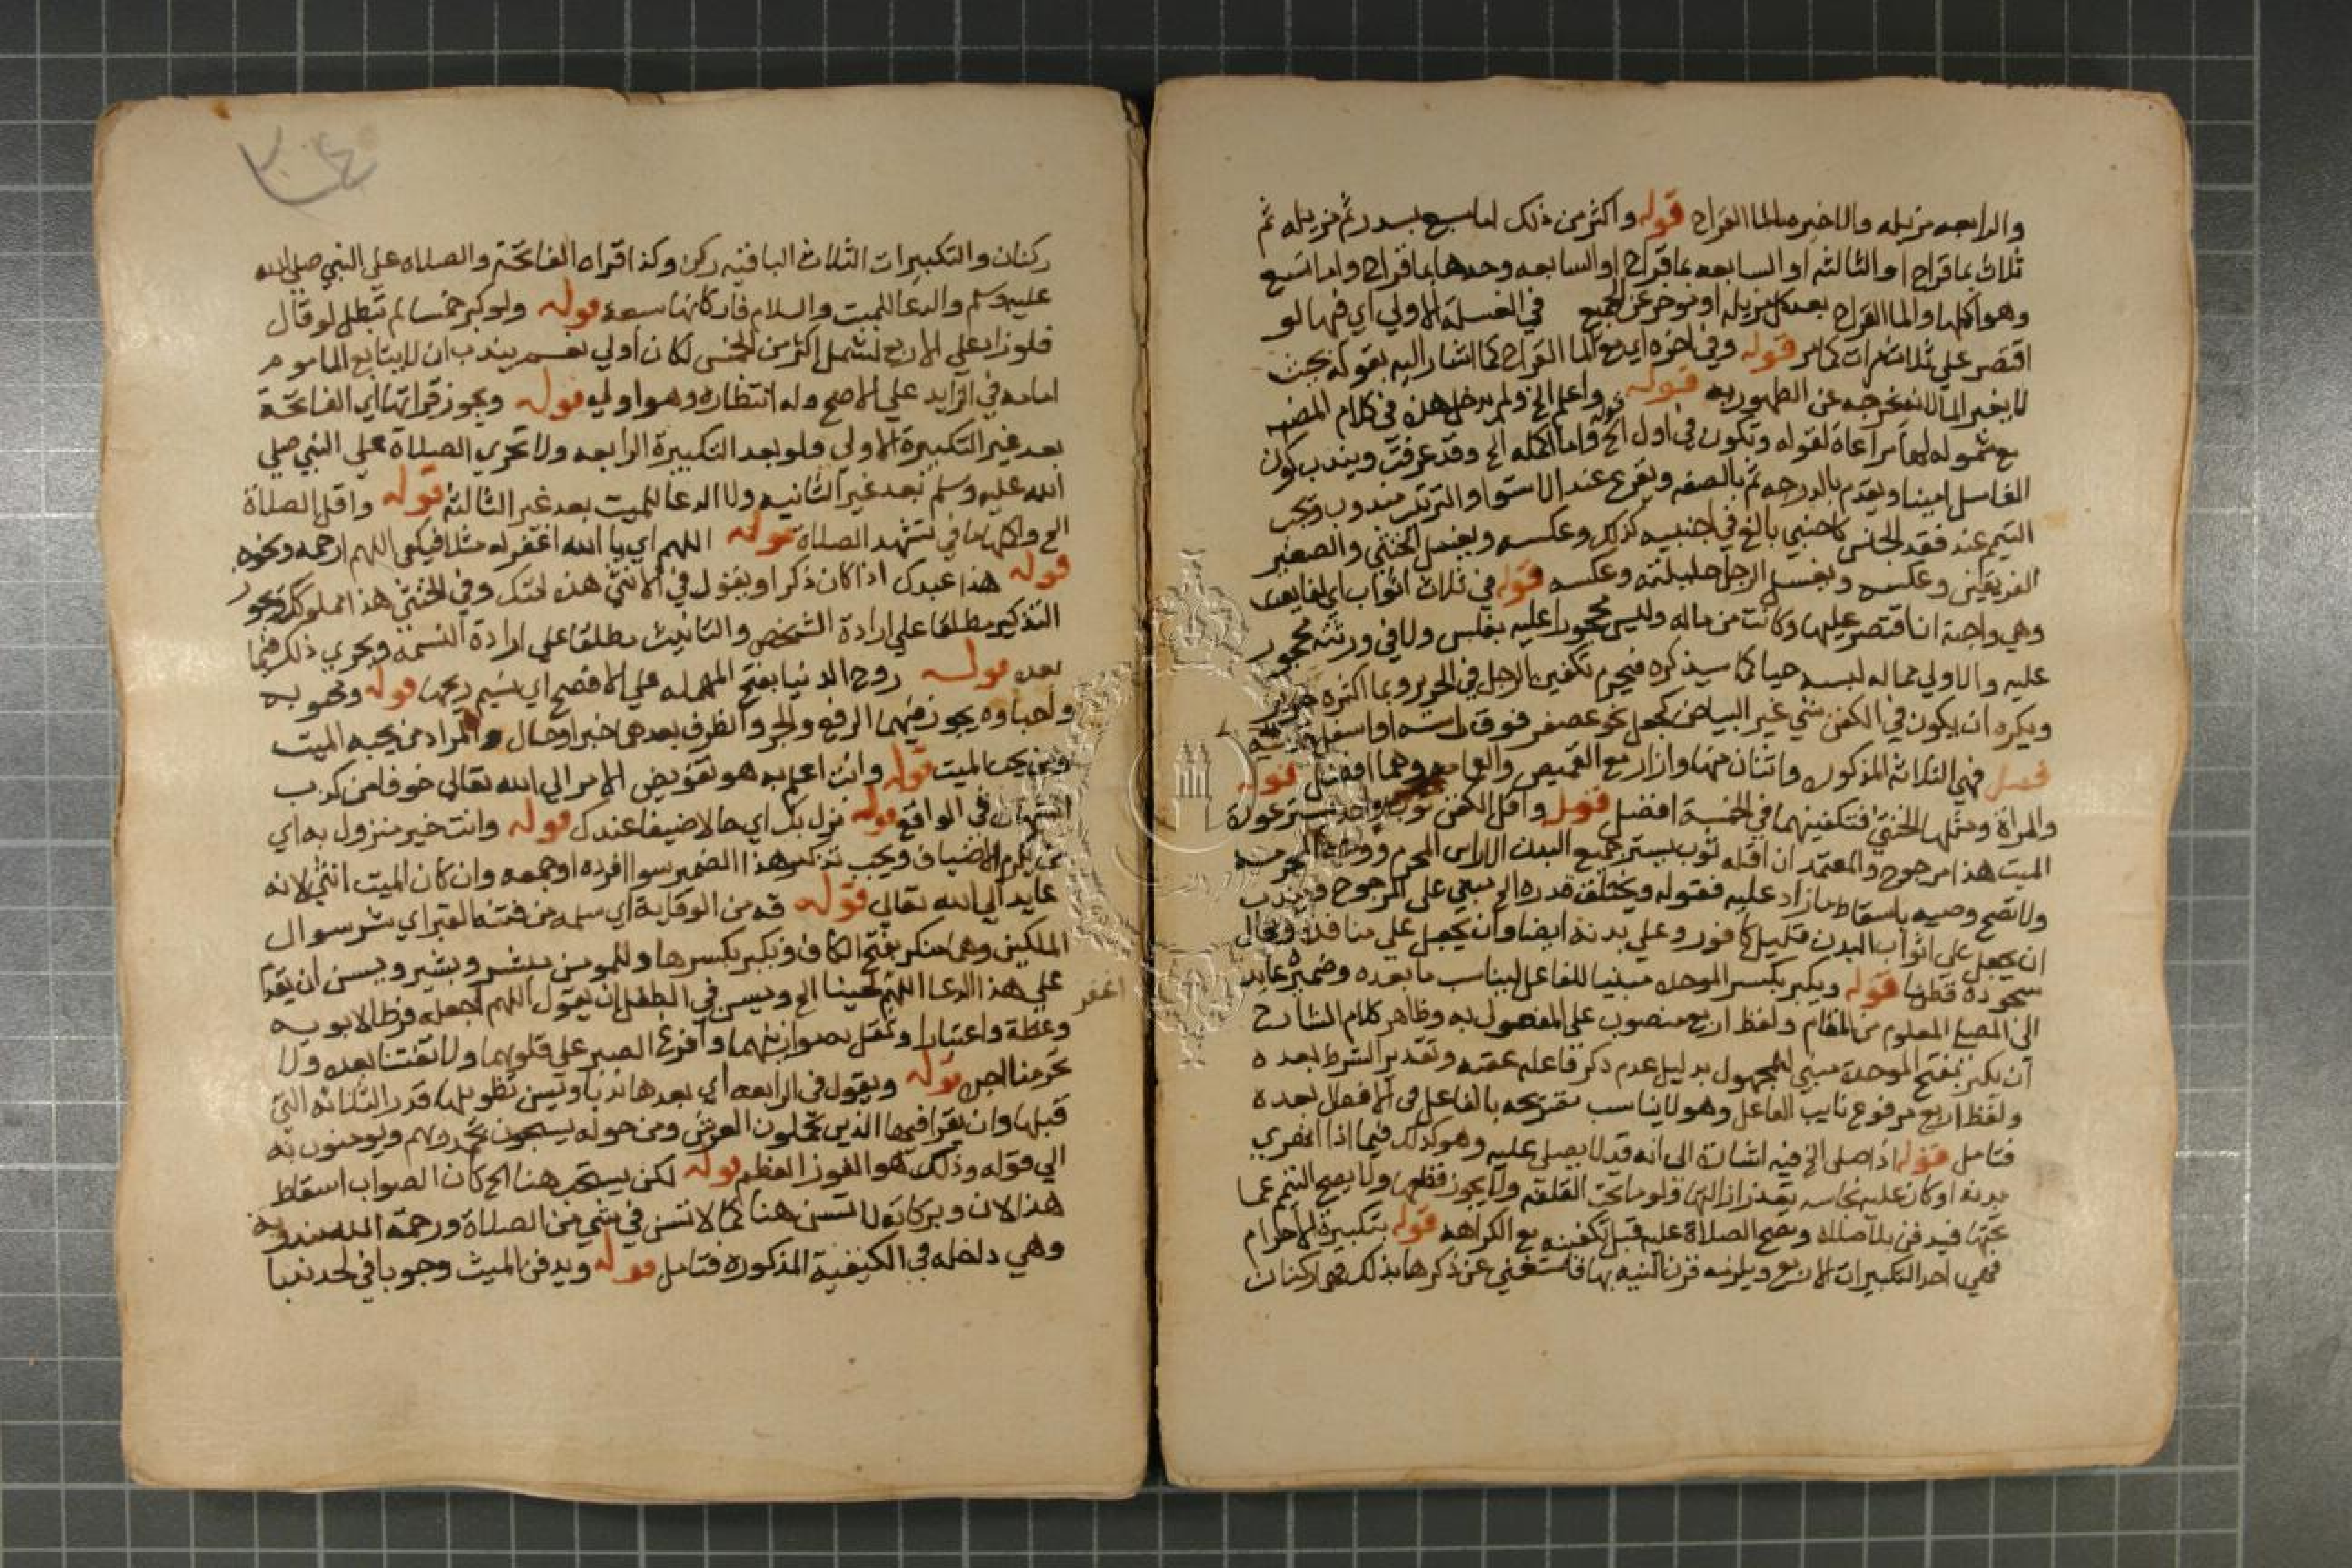 والرابعه مزيله والاخيره بالما القراح قوله واكثر من ذلك اما سبع بسدر ثم مزيله ثم
ثلاث بما قراح او الثالثه او السابعه بما قراح او السابعه وحدها بما قراح واما تسع
وهو اكملها والما القراح بعد كل مزيله او نوخر عن الجميع في الغسله الاولي اي فيما لو
اقتصر علي ثلاث مرات كما مر قوله وفي اخره اي مع الما القراح كما اشار اليه بقوله بحيث
لا يغير الما لانه يخرجه عن الطهوريه قوله واعلم الخ ولم يدخل هذه في كلام المصنف
مع شموله لها مراعاة لقوله وتكون في اول الخ قوله واما اكمله الخ وقد عرفت ويندب كون
الغاسل امينا ويقدم بالدرجه ثم بالصفه ويقرع عند الاستوا والترتيب مندوب ويجب
التيمم عند فقد الجانس كاجنبي بالغ في اجنبيه كذلك وعكسه ويغسل الخنثي والصغير
الفريقين وعكسه ويغسل الرجل حليلته وعكسه قوله في ثلاث اثواب اي لفايف
وهي واجبة ان اقتصر عليها وكانت من ماله وليس محجورا عليه بفلس ولا في ورثته محجور
عليه والاولي مما له لبسه حيا كما سيذكره فيحرم تكفين الرجل في الحرير وبما اكثره حرير
ويكره ان يكون في الكفن شي غير البياض كجعل نحو عصفر فوق راسه او اسفل
فصل فهي الثلاثه المذكوره واثنان منها وازار مع القميص والعمامه وهما افضل قوله
والمراة ومثلها الخنثي فتكفينهما في الخمسة افضل قوله واقل الكفن ثوب واحد يستر عورة
الميت هذا مرجوح والمعتمد ان اقله ثوب يستر جميع البدن الا راس المحرم ووجه المحرمه
ولا تصح وصيه باسقاط ما زاد عليه فقوله ويختلف قدره الخ مبني علي المرجوح ويندب
ان يجعل علي اثواب البدن قليل كافور وعلي بدنه ايضا وان يجعل علي منافذه ومحال
سجوده قطن قوله ويكبر بكسر الموحده مبنيا للفاعل ليناسب ما بعده وضميره عايد
الي المصلي المعلوم من المقام ولفظ اربع منصوب علي المفعول به وظاهر كلام الشارح
ان يكبر بفتح الموحدة مبني للمجهول بدليل عدم ذكر فاعله عقبه وتقدير الشرط بعده
ولفظ اربع مرفوع نايب الفاعل وهو لا يناسب تصريحه بالفاعل في الافعال بعده
فتامل قوله اذا صلي الخ فيه اشارة الي انه قد لا يصلي عليه وهو كذلك فيما اذا اتهري
بدنه او كان عليه نجاسه تعذر ازالتها ولو ما تحت القلفه ولا يجوز قطعها ولا يصح التيمم عما
تحتها فيدفن بلا صلاه وتصح الصلاة عليه قبل تكفينه مع الكراهه قوله بتكبيرة الاحرام
فهي احد التكبيرات الاربع ويلزمه قرن النيه بها فاستغني عن ذكرها بذلك فهي ركنان
ركنان والتكبيرات الثلاث الباقيه ركن وكذا قراه الفاتحه والصلاه علي النبي صلي الله
عليه وسلم والدعا للميت والسلام فاركانها سبعة قوله ولو كبر خمسا لم تبطل لو قال
فلو زاد علي الاربع لشمل اكثر من الخمس لكان اولي نعم يندب ان لا يتابع الماموم
امامه في الزايد علي الاصح وله انتظاره وهو اولي قوله ويجوز قراتها اي الفاتحة
بعد غير التكبيرة الاولي ولو بعد التكبيرة الرابعه ولا تجزي الصلاة علي النبي صلي
الله عليه وسلم بعد غير الثانيه ولا الدعا للميت بعد غير الثالثه قوله واقل الصلاة
الخ واكملها ما في تشهد الصلاة قوله اللهم اي يا الله اغفر له مثلا فيكفي اللهم ارحمه ونحوه
قوله هذا عبدك اذا كان ذكرا ويقول في الانثي هذه امتك وفي الخنثي هذا مملوكك ويجوز
التذكير مطلقا علي ارادة الشخص والتانيث مطلقا علي ارادة النسمه ويجري ذلك فيما
بعده قوله روح الدنيا بفتح المهمله علي الافصح اي نسيم ريحها قوله ومحبوبه
واحباوه يجوز فيهما الرفع والجر والظرف بعدهما خبر او حال والمراد من يحبه الميت
ومن يحب الميت قوله وانت اعلم به هو تفويض الامر الي الله تعالي خوفا من كذب
الشهادة في الواقع قوله نزل بك اي حالا ضيفا عندك قوله وانت خير منزول به اي
من يكرم الاضياف ويجب تذكير هذا الضمير سوا افرده او جمعه وان كان الميت انثي لانه
عايد الي الله تعالي قوله قه من الوقاية اي سلمه من فتنه القبر اي شر سوال
الملكين وهما منكر بفتح الكاف ونكير بكسرها وللمومن مبشر وبشير ويسن ان يقدم
علي هذا الدعا اللهم اغفر لحينا الخ ويسن في الطفل ان يقول اللهم اجعله فرطا لابويه
وعظة واعتبارا وثقل به موازينهما وافرغ الصبر علي قلوبهما ولا تفتنا بعده ولا
تحرمنا اجره قوله ويقول في الرابعه اي بعدها ندبا ويسن تطويلها قدر الثلاثه التي
قبلها وان يقرا فيها الذين يحملون العرش ومن حوله يسبحون بحمد ربهم ويومنون به
الي قوله وذلك هو الفوز العظيم قوله لكن يستحب هنا الخ كان الصواب اسقاط
هذا لان وبركاته لا تسن هنا كما لا تسن في شي من الصلاة ورحمة الله مندوبه
وهي داخله في الكيفية المذكورة فتامل قوله ويدفن الميت وجوبا في لحد ندبا